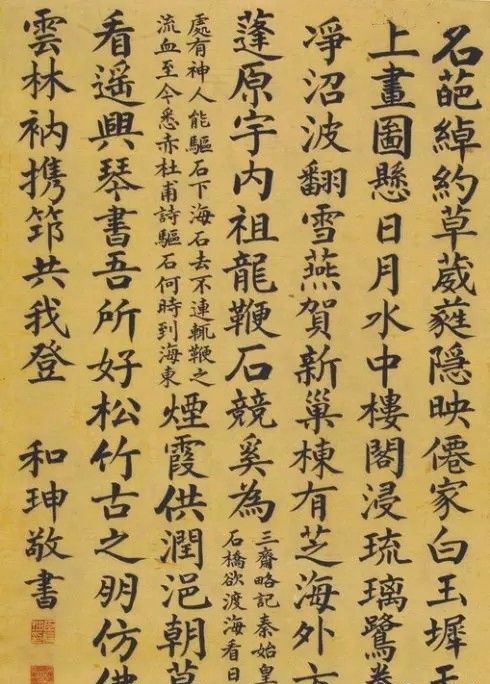 名葩綽約草葳蕤隱映僊家白玉墀
上畫圖懸日月水中樓閣浸琉璃鷺
凈沼波翻雪燕賀新巢棟有芝海外
蓬原宇內祖龍鞭石競奚為
三齋略記秦始皇
石橋欲渡海看日
處有神人能驅石下海石去不連輒鞭之
流血至今悉赤杜甫詩驅石何時到海東
煙霞供潤浥朝
看遙興琴書吾所好松竹古之朋仿佛
雲林衲携筇共我登 和珅敬書